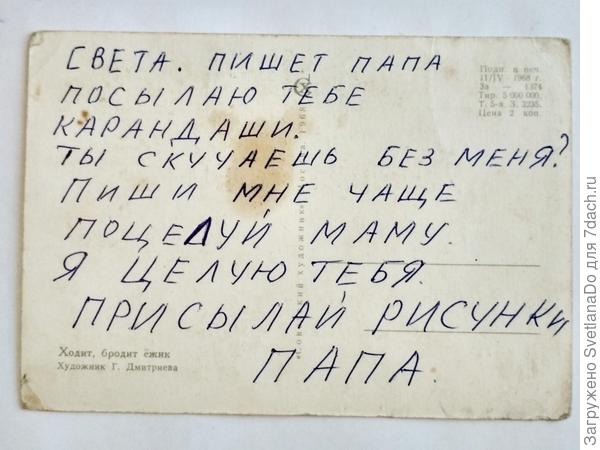 СВЕТА. ПИШЕТ ПАПА
ПОСЫЛАЮ ТЕБЕ
КАРАНДАШИ.
ТЫ СКУЧАЕШЬ БЕЗ МЕНЯ?
ПИШИ МНЕ ЧАЩЕ
ПОЦЕЛУЙ МАМУ.
Я ЦЕЛУЮ ТЕБЯ.
ПРИСЫЛАЙ РИСУНКИ
ПАПА.
Подп. в печ.
11/IV - 1968 г.
За — 1374
Тир. 5 000 000.
Т. 5-я З. 2235.
Цена 2 коп.
художник» 1968
Ходит, бродит ёжик
Художник Г. Дмитриева
Загружено SvetlanaDo для 7dach.ru